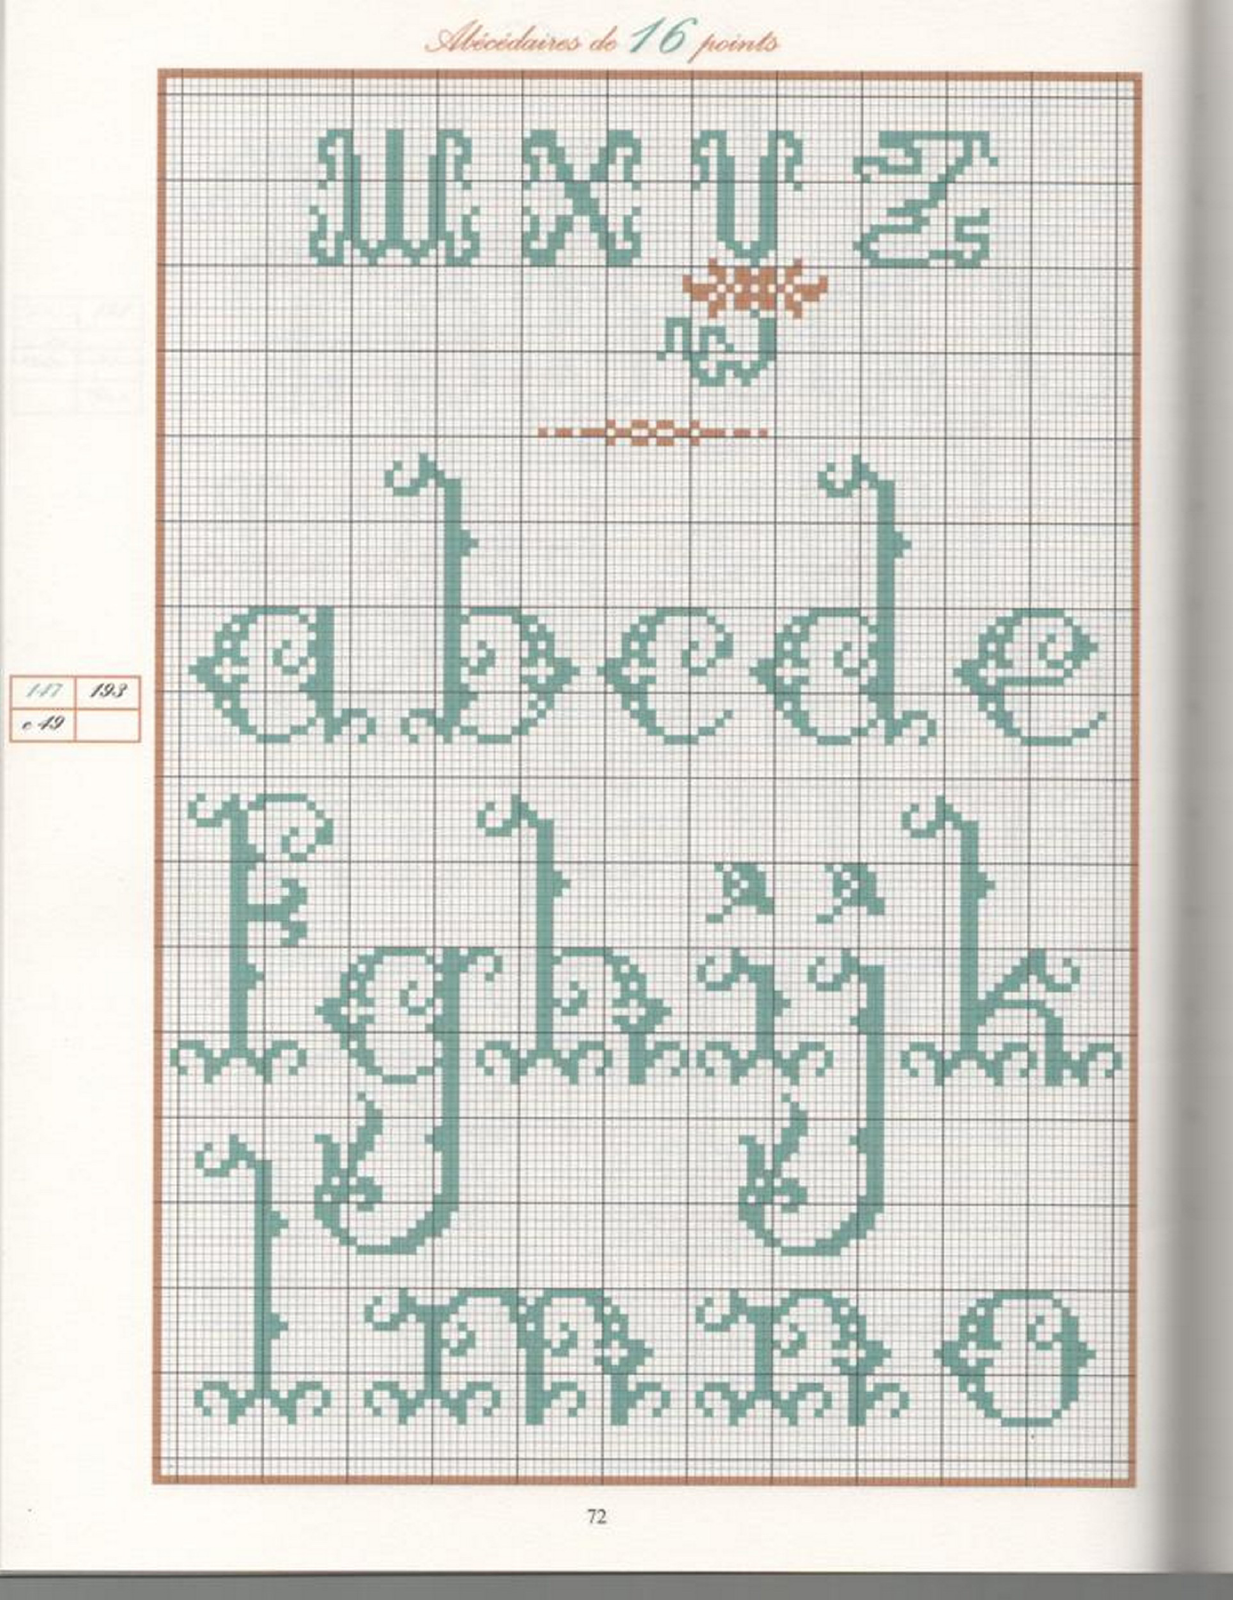 Abécédaires de 16 points
W X Y Z
a b c d e
147 193
c 49
f g h i j k
l m n o
72